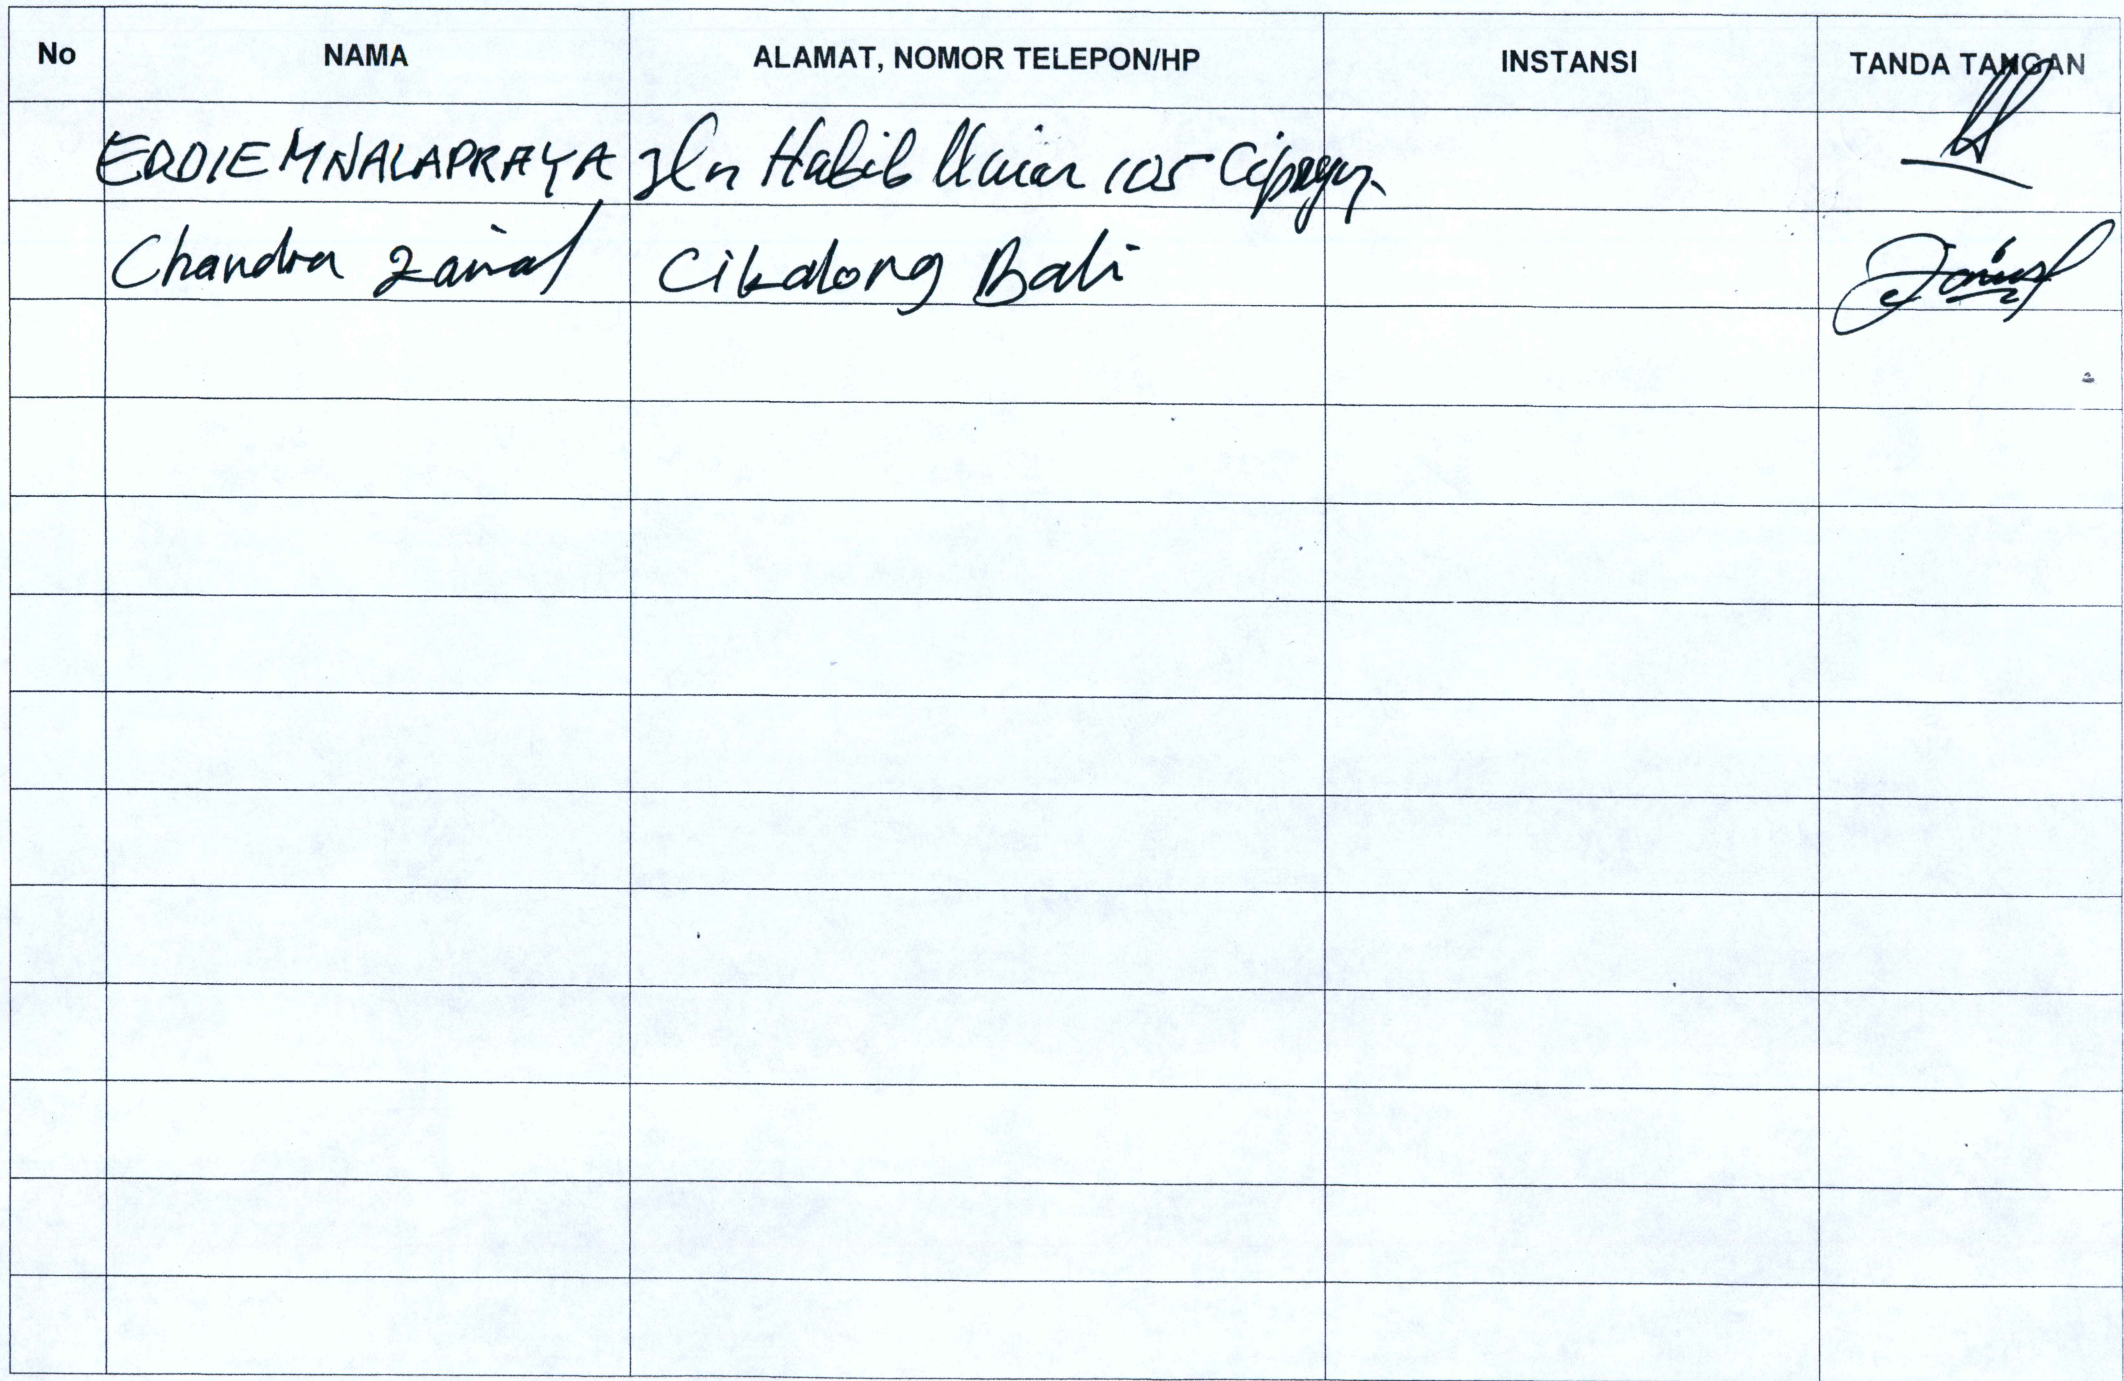 No NAMA ALAMAT, NOMOR TELEPON/HP INSTANSI TANDA TANGAN
EDDIE M NALAPRAYA Jln Habib Umar 105 Cipayung
Chandra Zainal Cikalong Bali